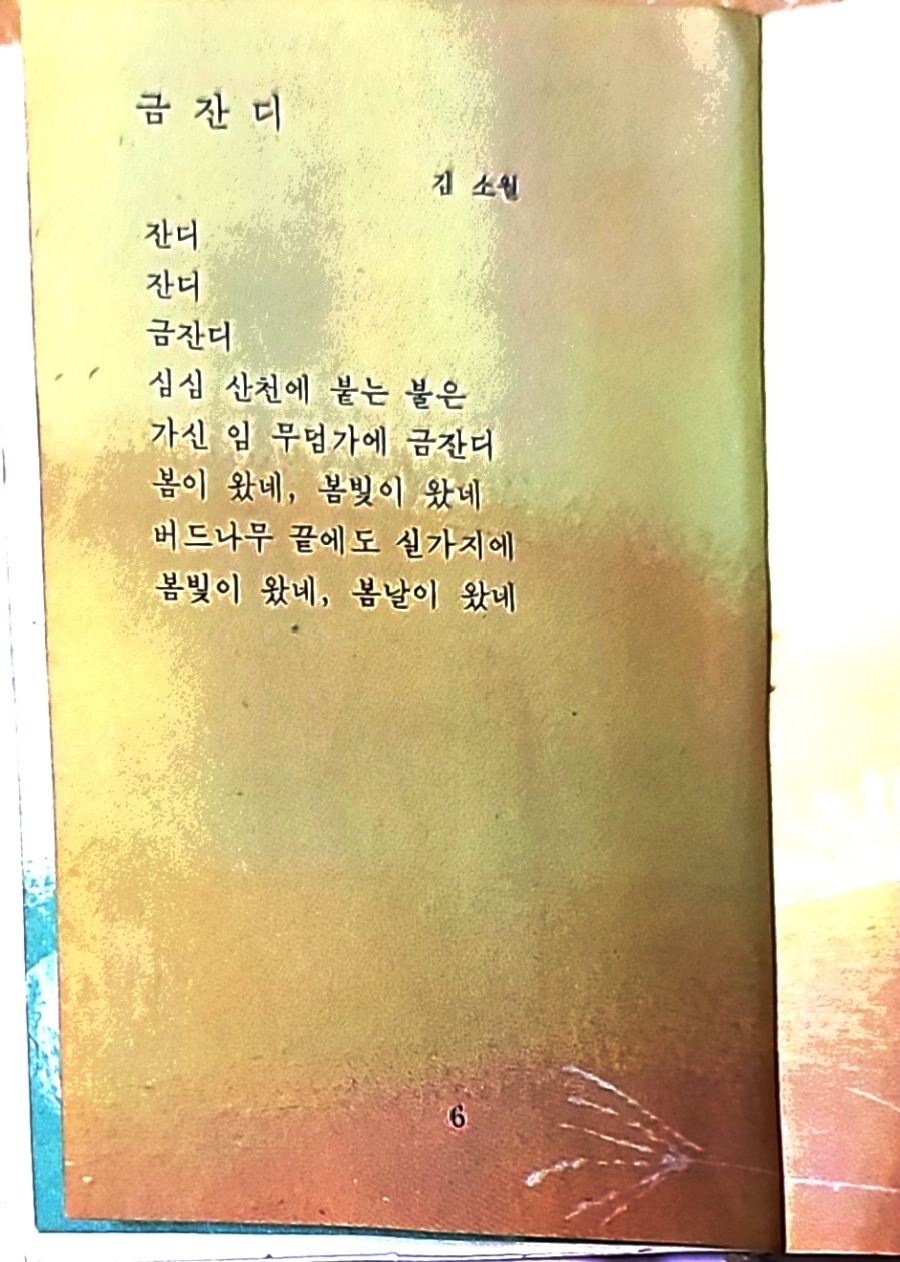 금 잔 디
김 소월
잔디
잔디
금잔디
심심 산천에 붙는 불은
가신 임 무덤가에 금잔디
봄이 왔네, 봄빛이 왔네
버드나무 끝에도 실가지에
봄빛이 왔네, 봄날이 왔네
6